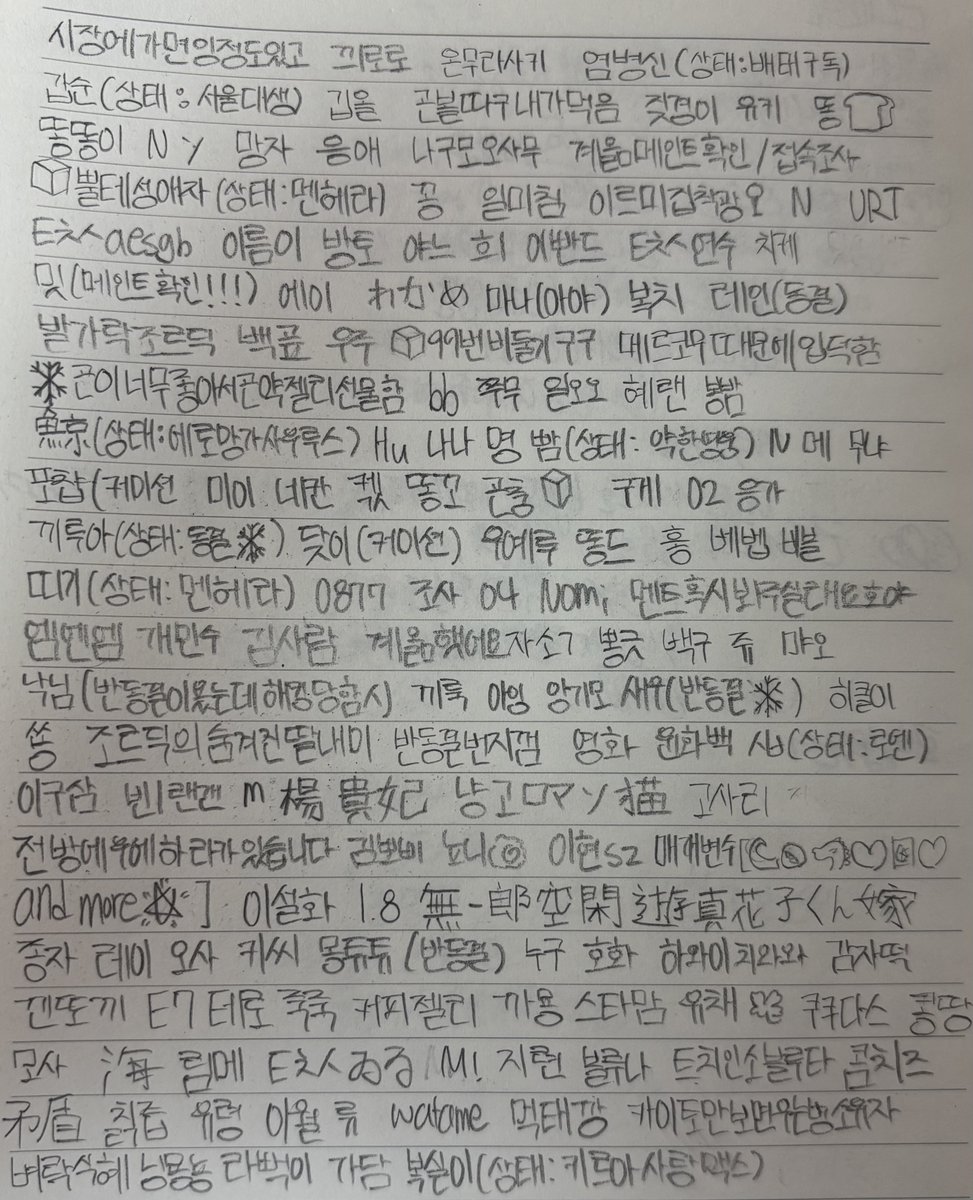 시장에가면잉정도있고 끼로로 온무라사키 염병신(상태:배태구독)
갑순(상태:서울대생) 깁을 곤볼따구내가먹음 짖경이 유키 똥
똥똥이 N y 망자 응애 나구모오사무 계옮메인트확인/접속조사
뿔테성애자(상태:멘헤라) 꽁 일미첩 이르미집착광오 N URT
E치ㅅaesgb 이름이 방토 야느 희 이반드 E치ㅅ연수 차제
및(메인트확인!!!) 에이 わかめ 마나(아야) 복치 레인(동결)
발가락조르딕 백곺 우주 99번비둘기구구 메르코무때문에입덕함
곤이너무좋아서곤약젤리선물함 bb 쭈무 일오오 혜랜 봉밤
(상태:에로망가사우루스) Hu 나나 명 빰(상태: 약한영웅) N 메 무냐
포챱(커미션 미이 네칸 켗 똥꼬 곤출 구게 02 응가
끼루아(상태:동결) 닻이(커미션) 우예루 똥드 흥 베벱 비블
띠기(상태:멘헤라) 0877 조사 04 Nomi 멘트혹시봐주실래요호야
엠엔엠 개민수 김사람 계옮했어요자소기 뿅긋 백구 쥬 먀오
낙님(반동결이옸는데해명당함시) 끼룩 아잉 앙기모 새우(반동결) 히클이
쏭 조르딕의숨겨진딸내미 반동결번지껨 영화 원화백 시ㅂ(상태:로멘)
이구삼 빈ㅣ랜갠 m 楊貴妃 냥고ロマン猫 고사리
전방에우에하라가있습니다 김뽀삐 뇨니 이현sz 매개변수[
and more ] 이설화 1.8 無一郎 空閑遊真 花子くん 嫁
종자 레이 오사 키씨 몽튜튜(반동결) 누구 호화 하와이치와와 감자떡
껜또끼 E7 테로 죽죽 커피젤리 까용 스타맘 유채 쿠쿠다스 콩땅
모사 海 림메 E치ㅅゐゐ M! 지련 블류나 트치인소블루타 콤치즈
矛盾 칡즙 유령 이월 류 watame 먹태깡 카이토만보면우는병소유자
벼락식혜 닝몽뇽 라벅이 가담 복실이(상태:키르아사랑맥스)